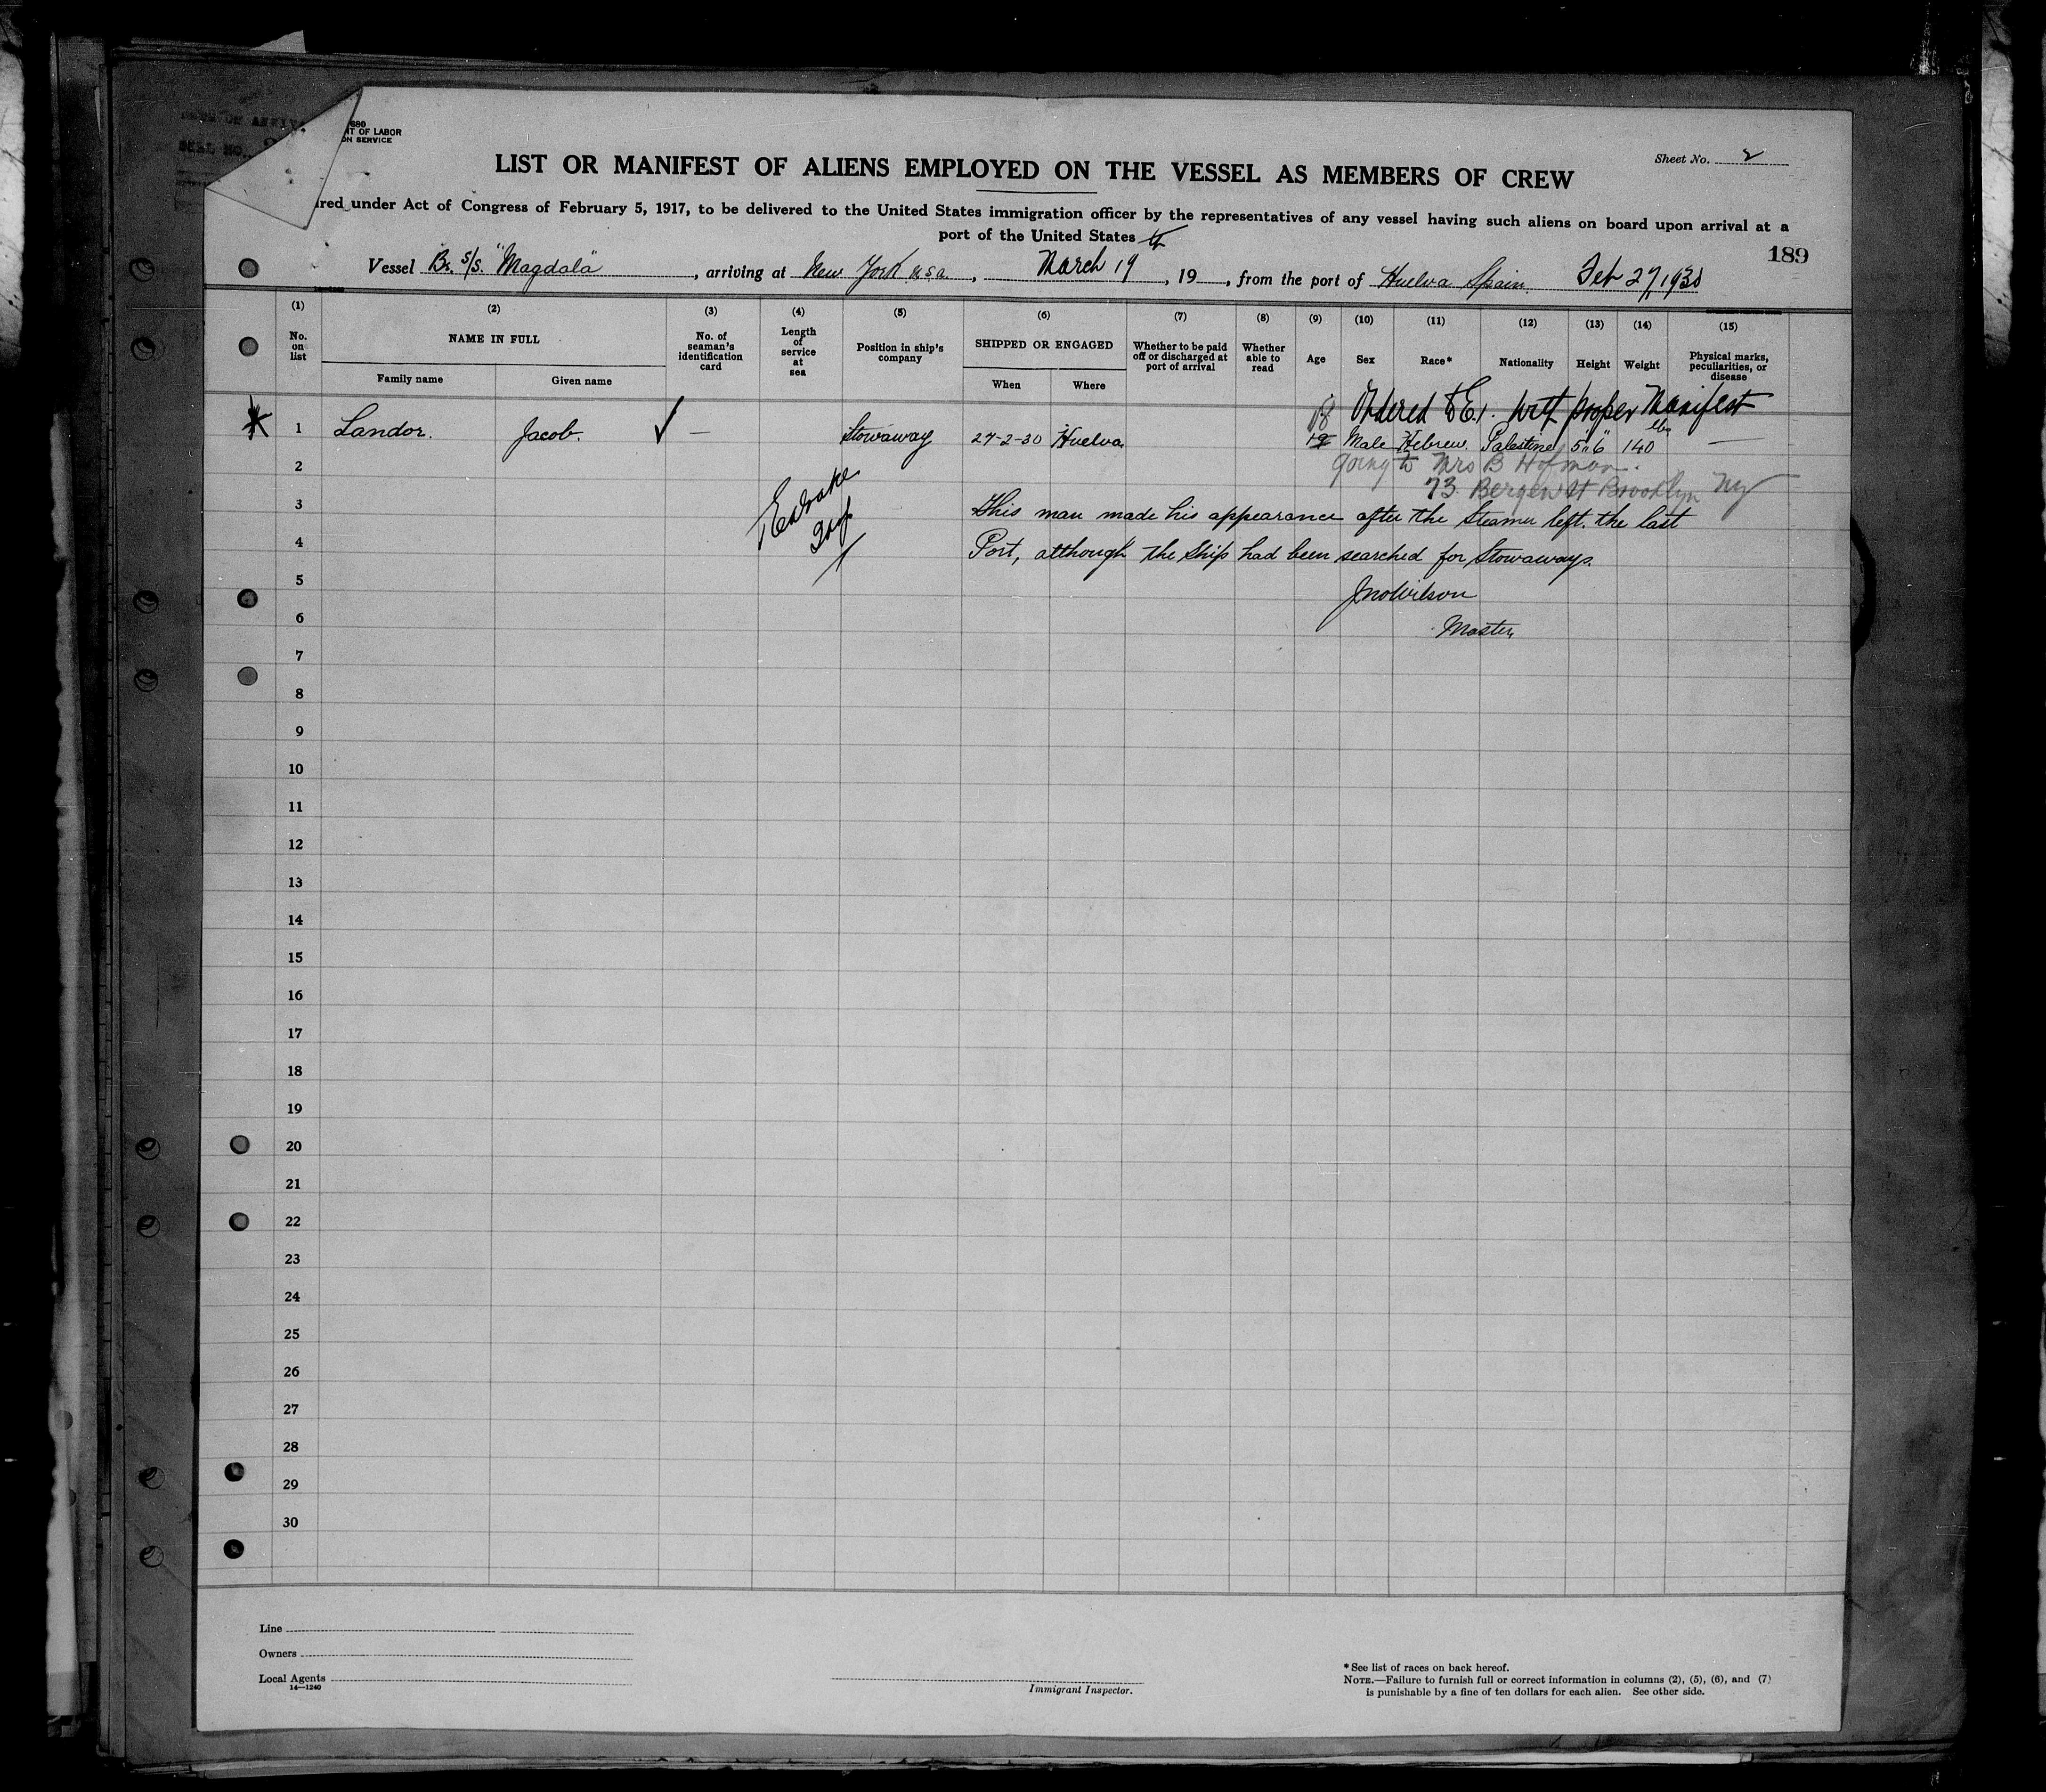 680
T OF LABOR
ON SERVICE
Sheet No. 2
LIST OR MANIFEST OF ALIENS EMPLOYED ON THE VESSEL AS MEMBERS OF CREW
ired under Act of Congress of February 5, 1917, to be delivered to the United States immigration officer by the representatives of any vessel having such aliens on board upon arrival at a
port of the United States
189
Vessel Br. S/S. "Magdala", arriving at New York U.S.A., March 19, 19, from the port of Huelva Spain. Feb 27, 1930
(1) (2) (3) (4) (5) (6) (7) (8) (9) (10) (11) (12) (13) (14) (15)
No. on list NAME IN FULL No. of seaman's identification card Length of service at sea Position in ship's company SHIPPED OR ENGAGED Whether to be paid off or discharged at port of arrival Whether able to read Age Sex Race* Nationality Height Weight Physical marks, peculiarities, or disease
Family name Given name When Where
18 Ordered to E.I. with proper Manifest
1 Landor. Jacob. — Stowaway 27-2-30 Huelva 19 Male Hebrew. Palestine 5'.6" 140 lbs —
2 going to Mrs B Hofman.
73 Bergen St Brooklyn Ny
3 This man made his appearance after the Steamer left. the last
4 Port, although the Ship had been searched for Stowaways.
5 Jno Wilson
6 Master,
7
8
9
10
11
12
13
14
15
16
17
18
19
20
21
22
23
24
25
26
27
28
29
30
Line
Owners
Local Agents
14—1240
Immigrant Inspector.
* See list of races on back hereof.
NOTE.—Failure to furnish full or correct information in columns (2), (5), (6), and (7)
is punishable by a fine of ten dollars for each alien. See other side.